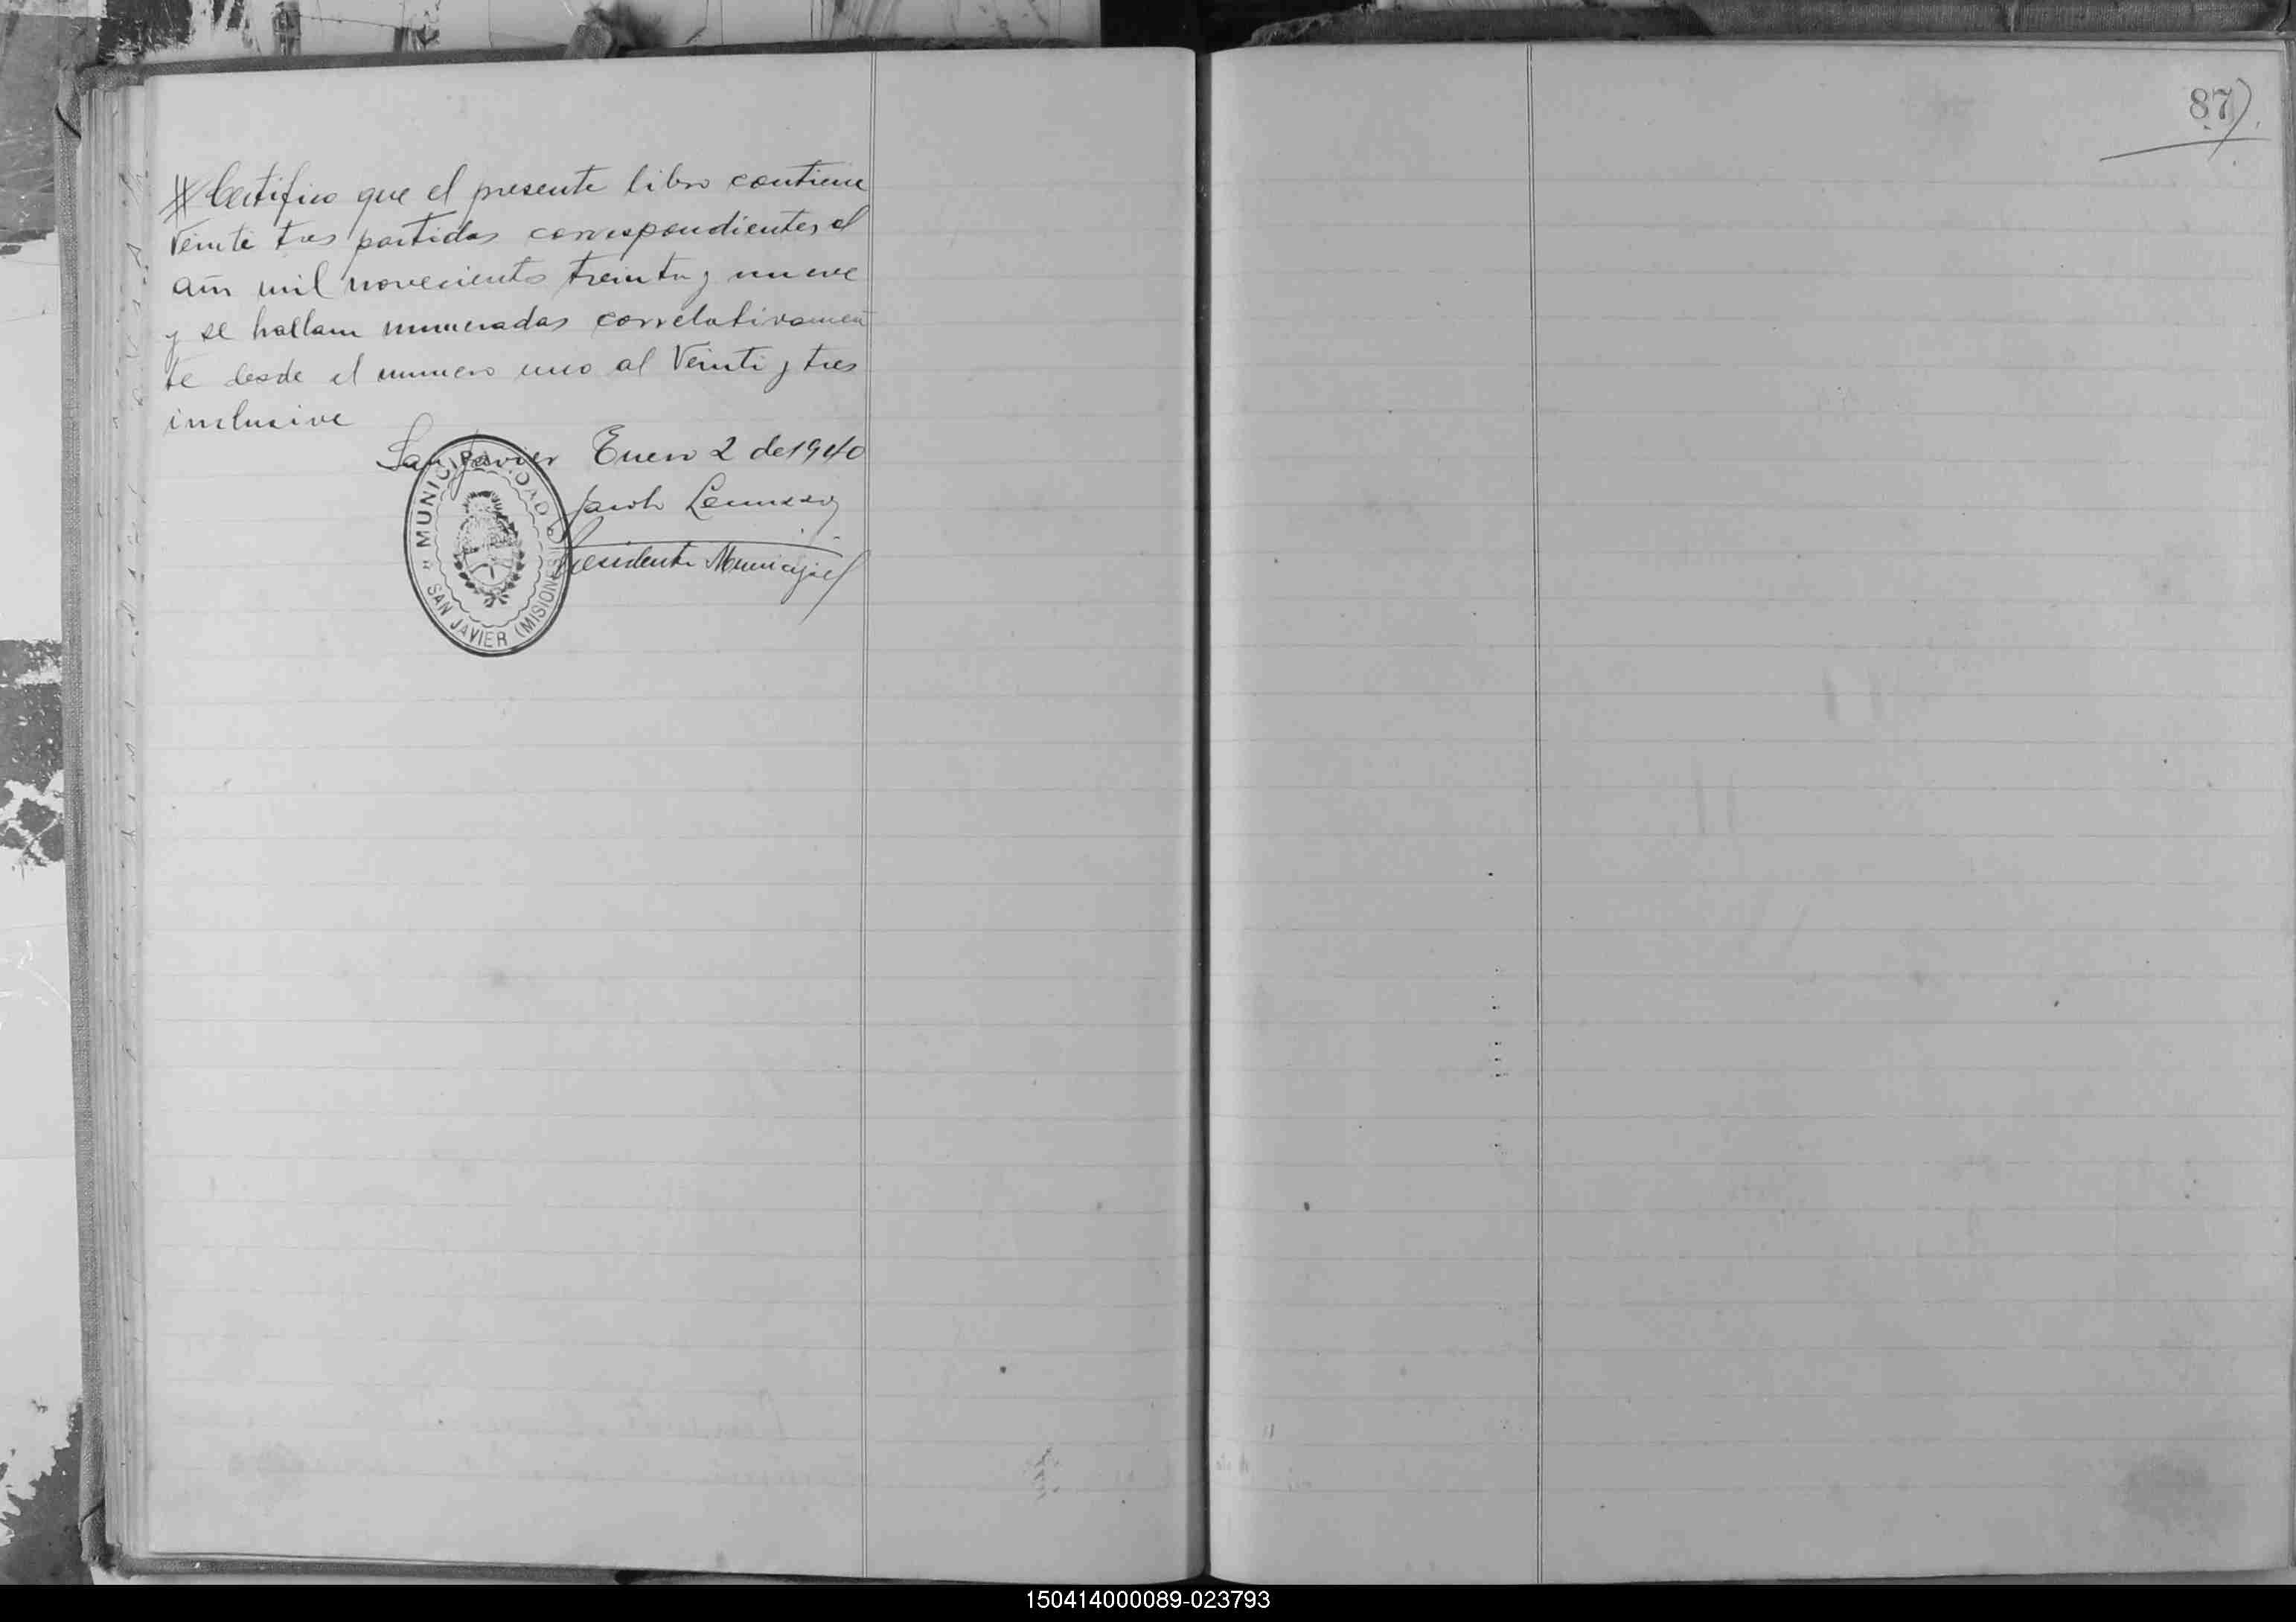 87
Certifico que el presente libro contiene
Veinte tres partidas correspondientes al
año mil novecientos treinta y nueve
y se hallan numeradas correlativamen
te desde el numero uno al Veinti y tres
inclusive
San Javier Enero 2 de 1940
Jacob
Presidente Municipal
"MUNICIPALIDAD"
SAN JAVIER (MISIONES)
150414000089-023793